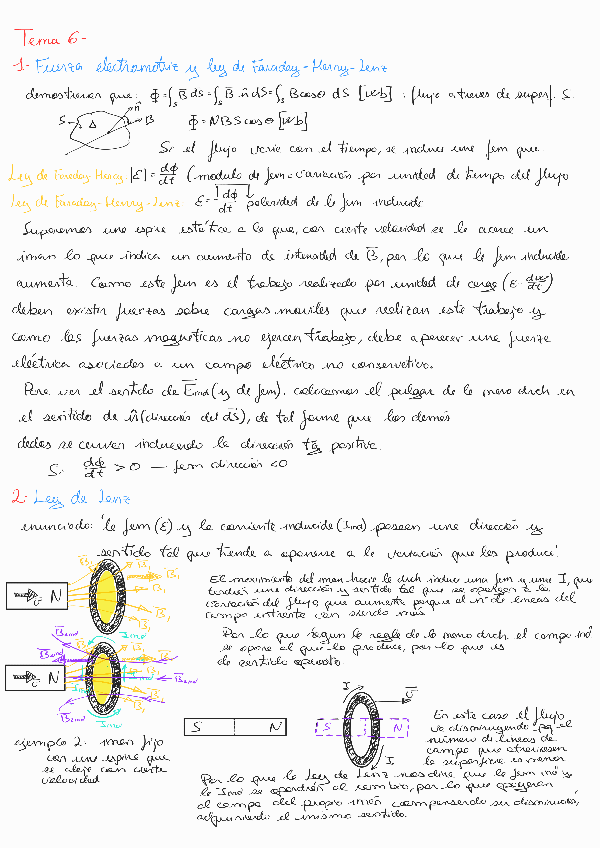 Tema 6-
1- Fuerza electromotriz y ley de Faraday-Henry-Lenz
demostraron que: Φ=∫s B̄ dS=∫s B̄ · n̂ dS=∫s B cosθ dS [wb] : flujo a traves de superf. S
S n̂ B̄ Φ = NBS cosθ [wb]
Si el flujo varia con el tiempo, se induce una fem que
Ley de Faraday-Henry |ε| = dϕ/dt (modulo de fem = variación por unidad de tiempo del flujo
Ley de Faraday-Henry-Lenz ε = - dϕ/dt polaridad de la fem inducida
Suponemos una espira estática a la que, con cierta velocidad se le acerca un
iman lo que indica un aumento de intensidad de B̄, por lo que la fem inducida
aumenta. Como esta fem es el trabajo realizado por unidad de carga (ε dw/dt)
deben existir fuerzas sobre cargas moviles que realizan este trabajo y
como las fuerzas magneticas no ejercen trabajo, debe aparecer una fuerza
eléctrica asociada a un campo eléctrico no conservativo.
Para ver el sentido de Ēind (y de fem). colocamos el pulgar de la mano drch en
el sentido de n̂ (dirección del ds̄), de tal forma que los demás
dedos se curvan induciendo la dirección tg positiva.
Si dϕ/dt > 0 — fem dirección < 0
2. Ley de Lenz
enunciado: 'la fem (ε) y la corriente inducida (Iind) poseen una dirección y
sentido tal que tiende a oponerse a la variación que las produce'.
El movimiento del iman hacia la drch induce una fem y una I, que
tendrá una dirección y sentido tal que se opongan a la
variación del flujo, que aumenta porque el nº de lineas del
campo entrante van siendo más
Por lo que según la regla de la mano drch. el campo ind
se opone al que lo produce, por lo que es
de sentido opuesto
v̄ N B̄1 B̄1 B̄1
B̄ind Iind B̄1
v̄ N B̄1 B̄ind
B̄ind Iind B̄1
ejemplo 2. iman fijo
con una espira que
se aleja con cierta
velocidad
S N S N I v̄ I
En este caso el flujo
va disminuyendo pq el
número de lineas de
campo que atraviesan
la superficie es menor
Por lo que la Ley de Lenz nos dice que la fem ind y
la Iind se opondrán al cambio, por lo que apoyarán
al campo del propio imán compensando su disminución,
adquiriendo el mismo sentido.